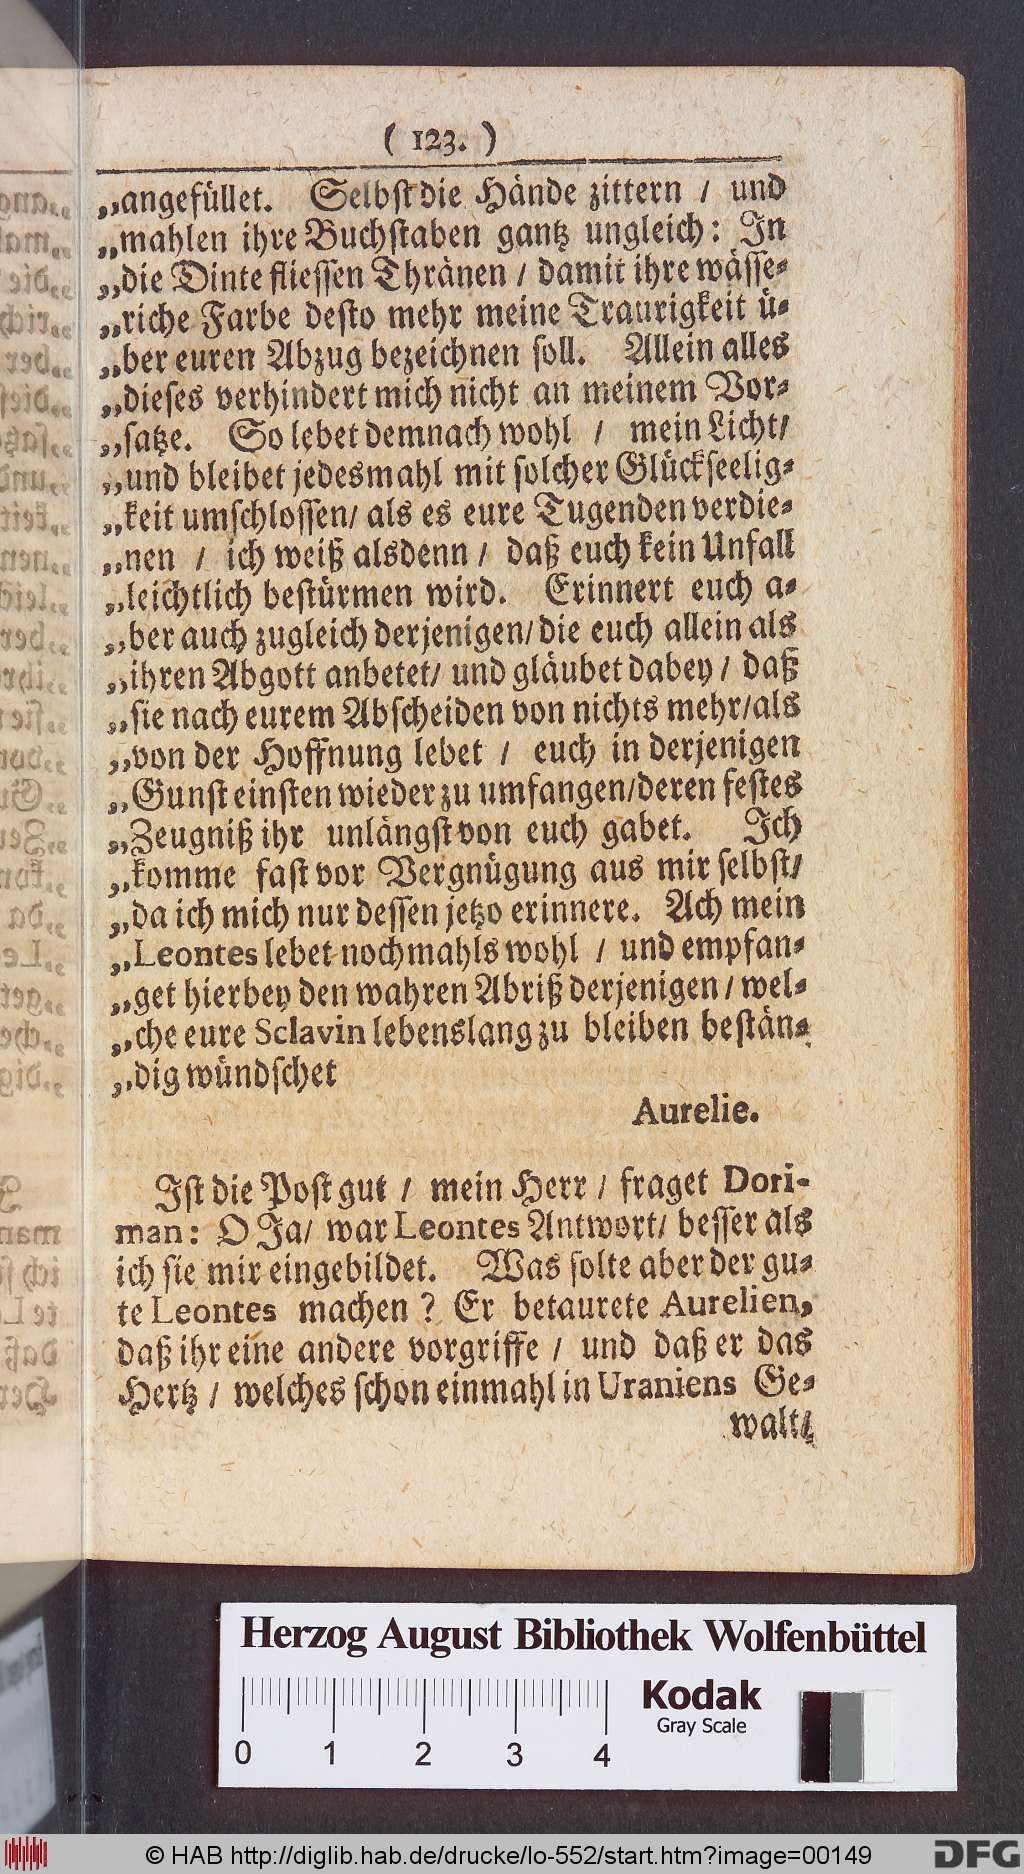 ( 123. )
„angefüllet. Selbst die Hände zittern / und
„mahlen ihre Buchstaben gantz ungleich: In
„die Dinte fliessen Thränen / damit ihre wässe-
„riche Farbe desto mehr meine Traurigkeit ü-
„ber euren Abzug bezeichnen soll. Allein alles
„dieses verhindert mich nicht an meinem Vor-
„satze. So lebet demnach wohl / mein Licht/
„und bleibet jedesmahl mit solcher Glückseelig-
„keit umschlossen/ als es eure Tugenden verdie-
„nen / ich weiß alsdenn / daß euch kein Unfall
„leichtlich bestürmen wird. Erinnert euch a-
„ber auch zugleich derjenigen/ die euch allein als
„ihren Abgott anbetet/ und gläubet dabey / daß
„sie nach eurem Abscheiden von nichts mehr/als
„von der Hoffnung lebet / euch in derjenigen
„Gunst einsten wieder zu umfangen/deren festes
„Zeugniß ihr unlängst von euch gabet. Ich
„komme fast vor Vergnügung aus mir selbst/
„da ich mich nur dessen jetzo erinnere. Ach mein
„Leontes lebet nochmahls wohl / und empfan-
„get hierbey den wahren Abriß derjenigen / wel-
„che eure Sclavin lebenslang zu bleiben bestän-
„dig wündschet
Aurelie.
Ist die Post gut / mein Herr / fraget Dori-
man: O Ja/ war Leontes Antwort/ besser als
ich sie mir eingebildet. Was solte aber der gu-
te Leontes machen ? Er betaurete Aurelien,
daß ihr eine andere vorgriffe / und daß er das
Hertz / welches schon einmahl in Uraniens Ge-
walt/
Herzog August Bibliothek Wolfenbüttel
Kodak
Gray Scale
0 1 2 3 4
© HAB http://diglib.hab.de/drucke/lo-552/start.htm?image=00149
DFG